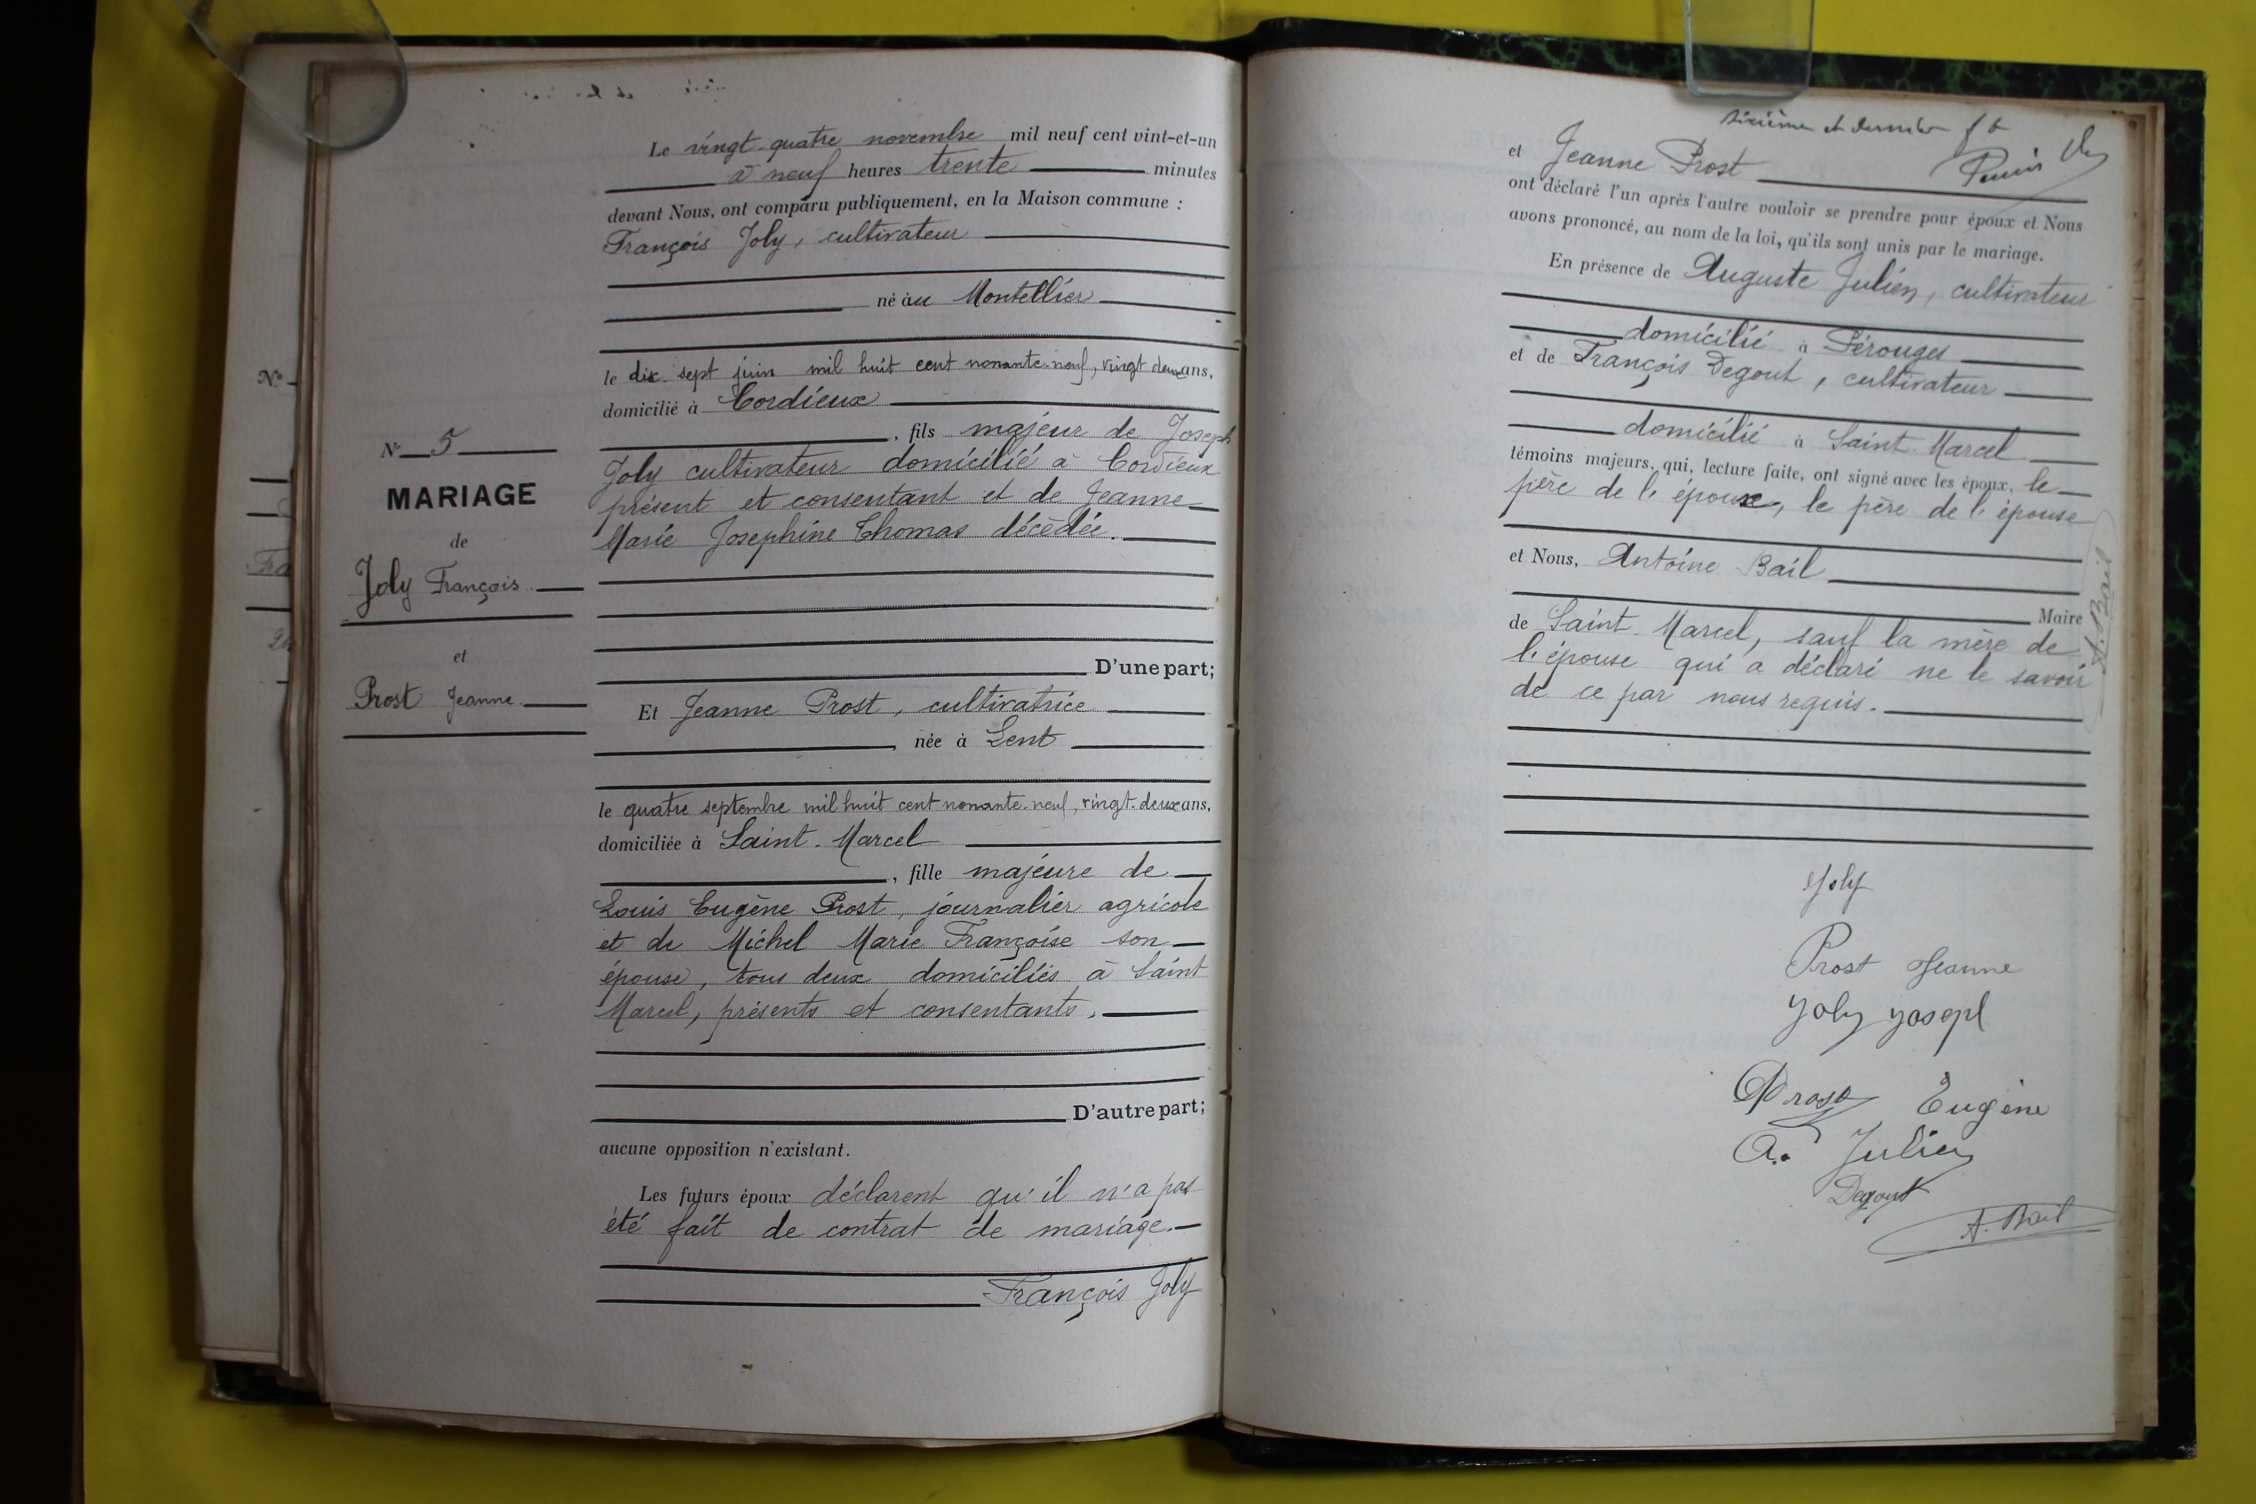 N° 5
MARIAGE
de
Joly François
et
Prost Jeanne
Le vingt-quatre novembre mil neuf cent vint-et-un
à neuf heures trente minutes
devant Nous, ont comparu publiquement, en la Maison commune :
François Joly, cultivateur
né au Montellier
le dix-sept juin mil huit cent nonante-neuf, vingt deux ans,
domicilié à Cordieux
, fils majeur de Joseph
Joly cultivateur domicilié à Cordieux
présent et consentant et de Jeanne
Marie Josephine Thomas décédée.
D'une part;
Et Jeanne Prost, cultivatrice
, née à Lent
le quatre septembre mil huit cent nonante-neuf, vingt-deux ans,
domiciliée à Saint-Marcel
, fille majeure de
Louis Eugène Prost, journalier agricole
et de Michel Marie Françoise son
épouse, tous deux domiciliés à Saint
Marcel, présents et consentants.
D'autre part;
aucune opposition n'existant.
Les futurs époux déclarent qu'il n'a pas
été fait de contrat de mariage.
François Joly
sixième et dernier
et Jeanne Prost
ont déclaré l'un après l'autre vouloir se prendre pour époux et Nous
avons prononcé, au nom de la loi, qu'ils sont unis par le mariage.
En présence de Auguste Julien, cultivateur
domicilié à Pérouges
et de François Degout, cultivateur
domicilié à Saint-Marcel
témoins majeurs, qui, lecture faite, ont signé avec les époux, le
père de l'époux, le père de l'épouse
et Nous, Antoine Bail
Maire
de Saint-Marcel, sauf la mère de
l'épouse qui a déclaré ne le savoir
de ce par nous requis.
A. Bail
Joly
Prost Jeanne
Joly Joseph
Prost Eugène
A. Julien
Degout
A. Bail